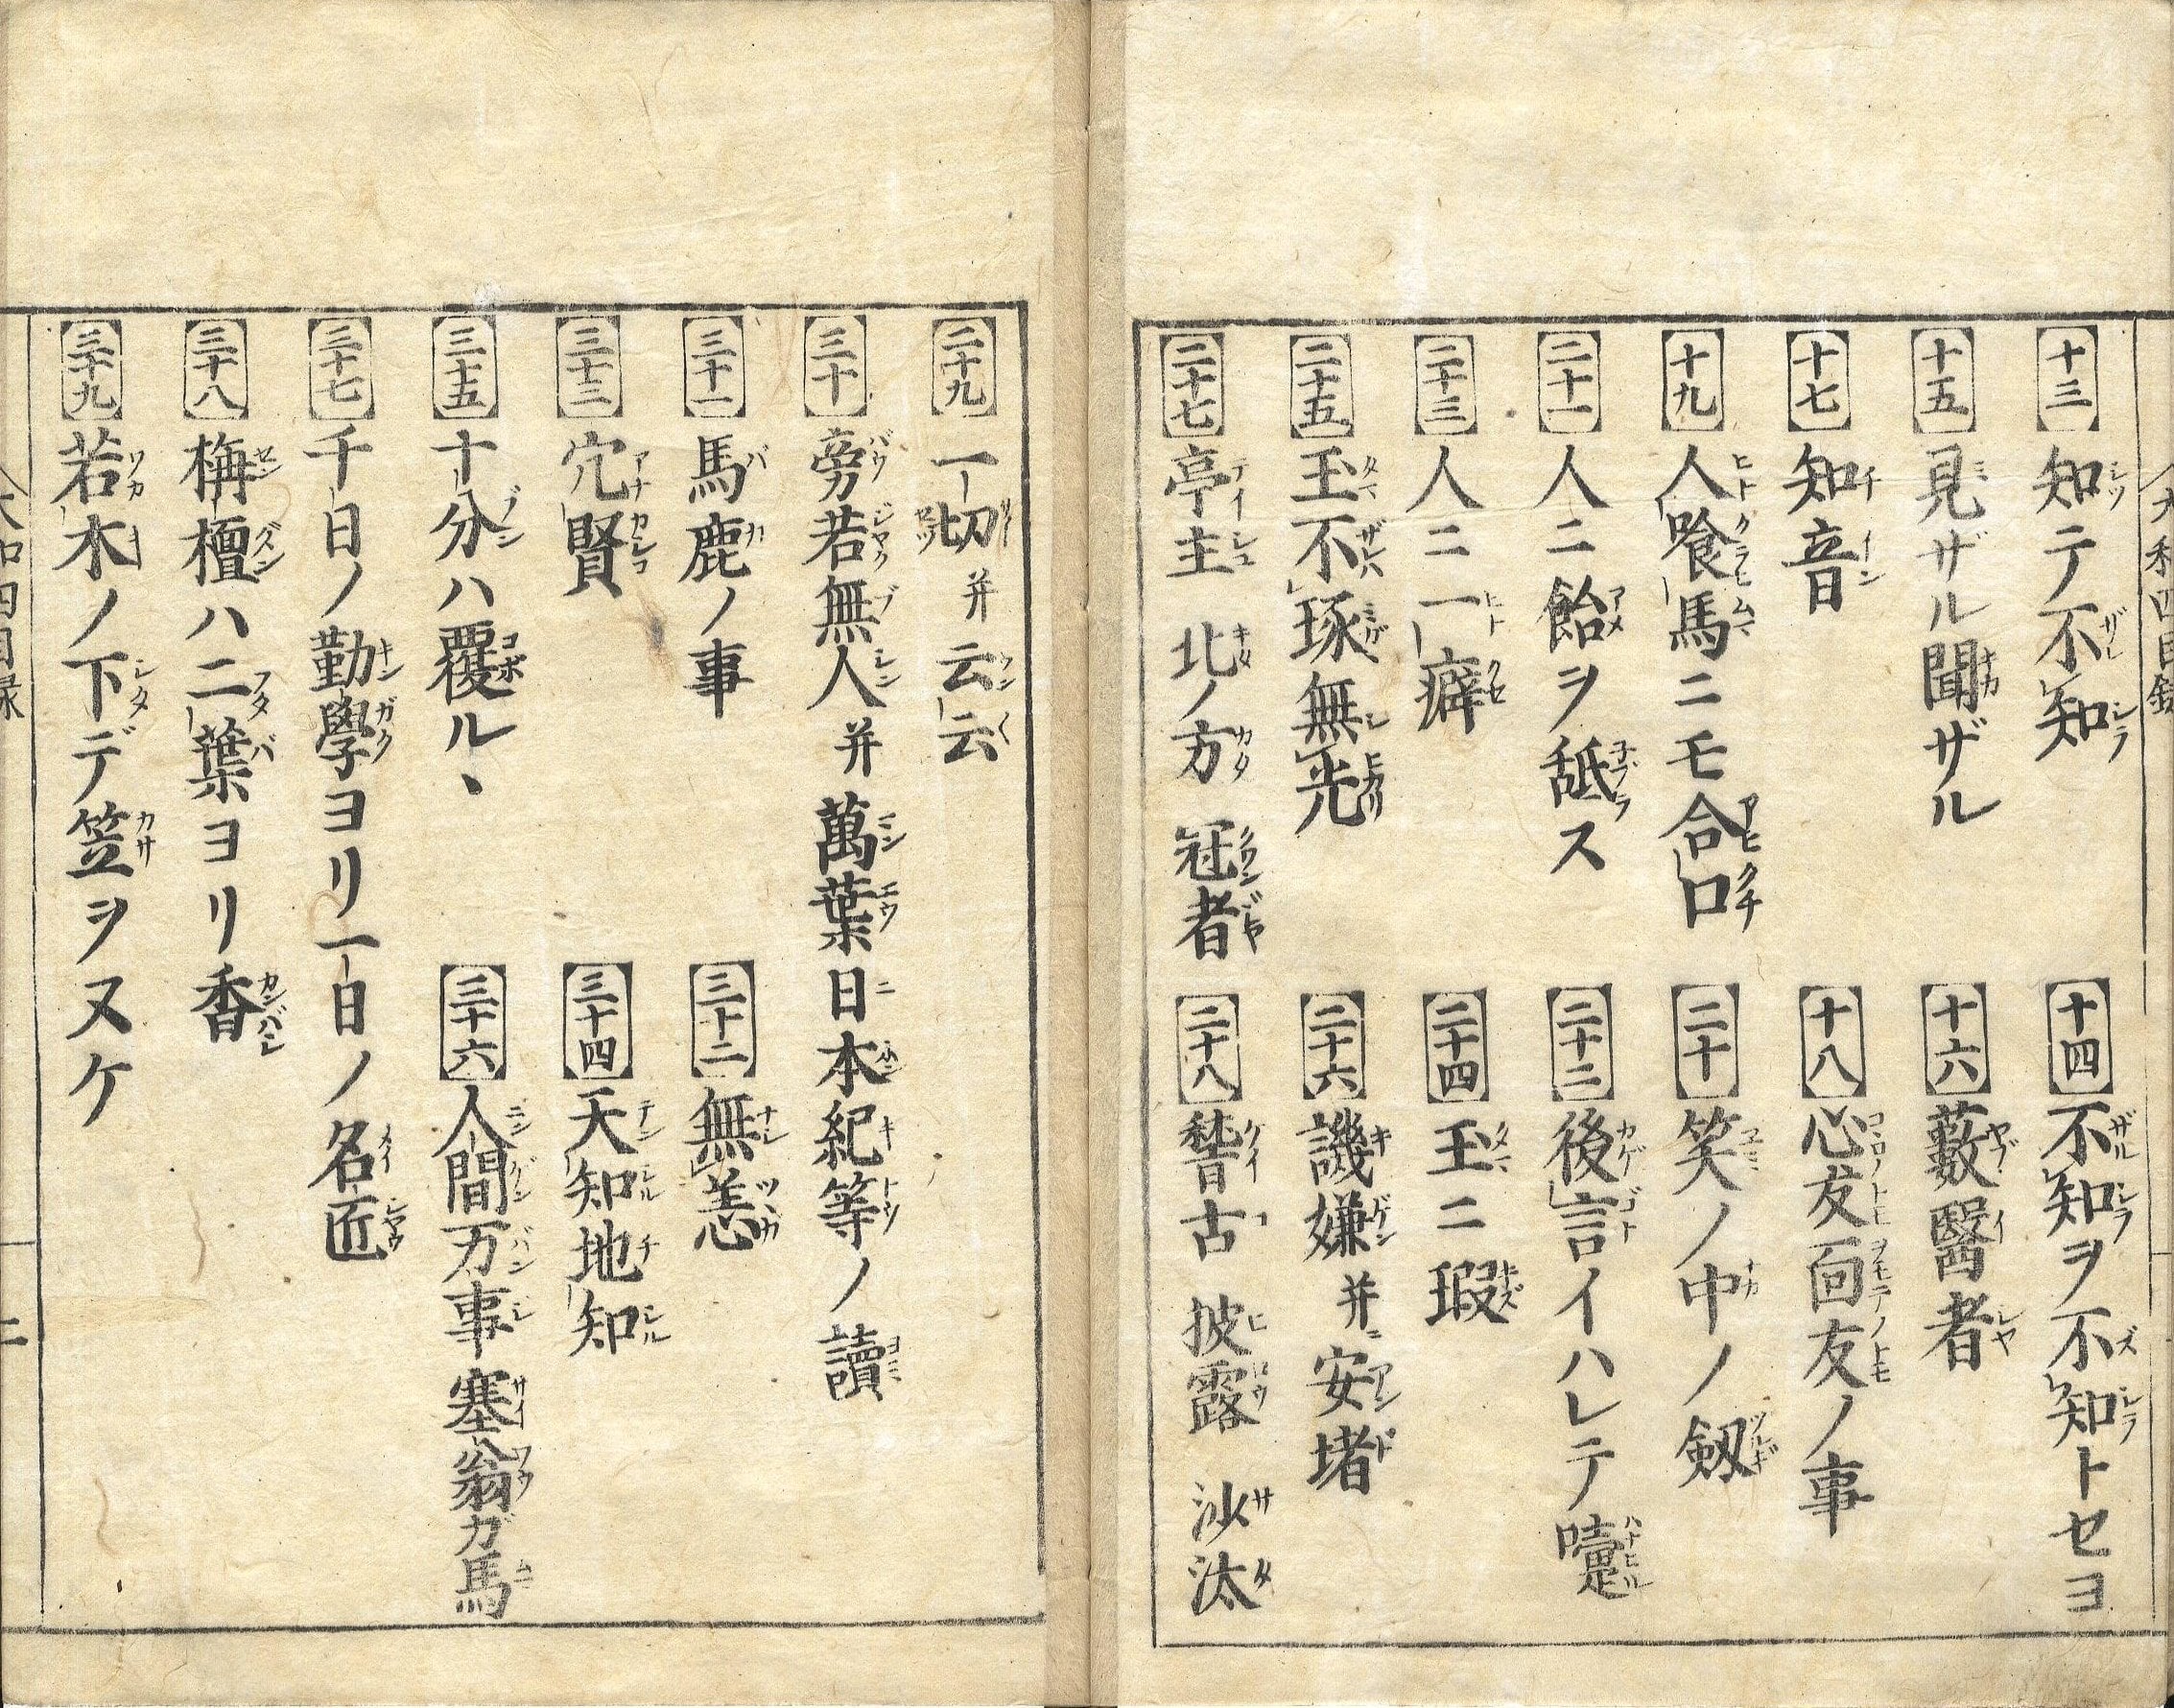 十三 知テ不知
十四 不知ヲ不知トセヨ
十五 見ザル聞ザル
十六 藪醫者
十七 知音
十八 心友面友ノ事
十九 人喰馬ニモ合口
二十 笑ノ中ノ劔
二十一 人ニ飴ヲ舐ス
二十二 後言イハレテ嚔
二十三 人ニ一癖
二十四 玉ニ瑕
二十五 玉不琢無光
二十六 譏嫌 并ニ 安堵
二十七 亭主 北ノ方 冠者
二十八 稽古 披露 沙汰
二十九 一切 并 云云
三十 旁若無人 并 萬葉日本紀等ノ讀
三十一 馬鹿ノ事
三十二 無恙
三十三 穴賢
三十四 天知地知
三十五 十分ハ覆ル丶
三十六 人間万事塞翁ガ馬
三十七 千日ノ勤學ヨリ一日ノ名匠
三十八 栴檀ハ二葉ヨリ香
三十九 若木ノ下デ笠ヲヌケ